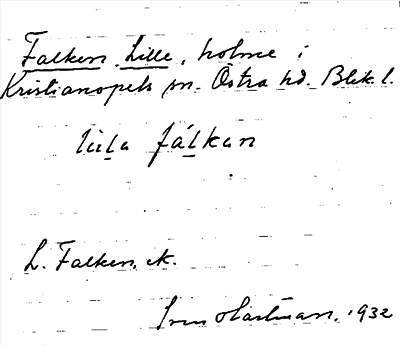 Falken, Lille, holme i
Kristianopels sn. Östra hd. Blek. l.
lila fálkan
L. Falken, ek.
Sven Hartman, 1932